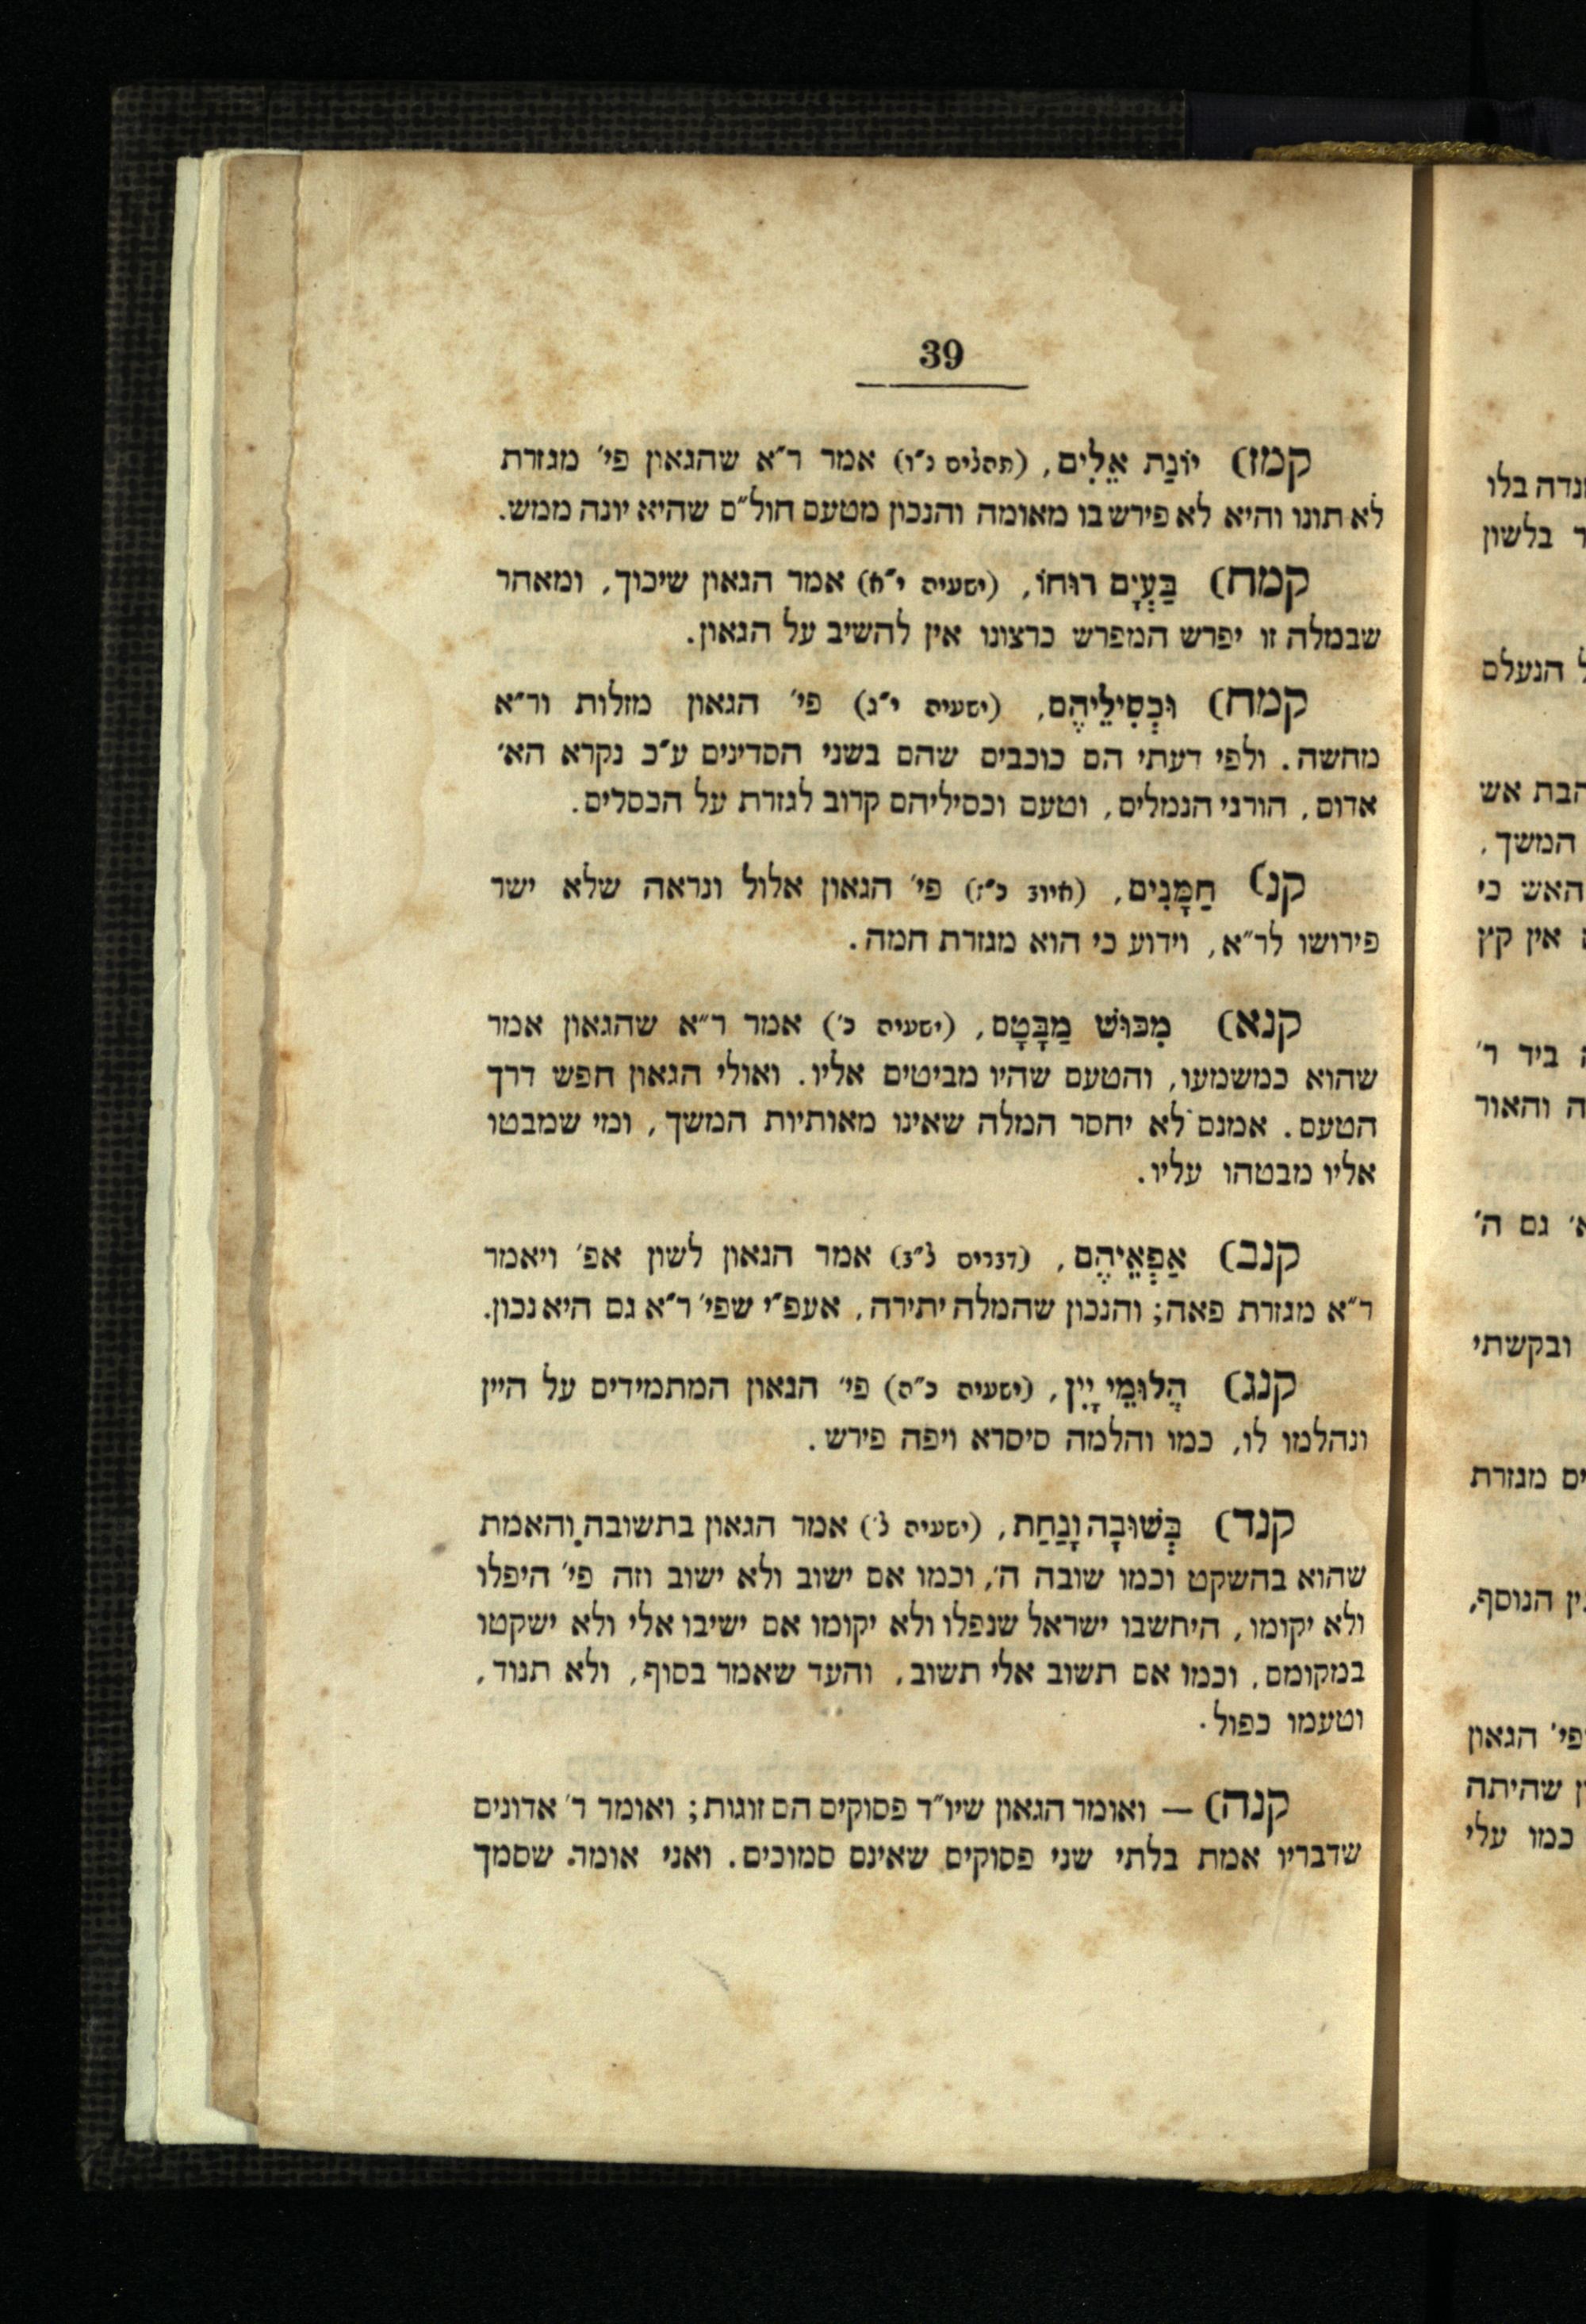 39
קמז) יוֹנַת אֵלִים, (תהלים נ״ו) אמר ר״א שהגאון פי׳ מגזרת
לא תונו והיא לא פירש בו מאומה והנכון מטעם חול״ם שהיא יונה ממש.
קמח) בַּעְיָם רוּחוֹ, (ישעיה י״א) אמר הגאון שיכוך, ומאחר
שבמלה זו יפרש המפרש כרצונו אין להשיב על הגאון.
קמח) וּכְסִילֵיהֶם, (ישעיה י״ג) פי׳ הגאון מזלות ור״א
מחשה. ולפי דעתי הם כוכבים שהם בשני הסדינים ע״כ נקרא הא׳
אדום, הורגי הגמלים, וטעם וכסיליהם קרוב לגזרת על הכסלים.
קנ) חַמָּנִים, (איוב כ״ז) פי׳ הגאון אלול ונראה שלא ישר
פירושו לר״א, וידוע כי הוא מגזרת חמה.
קנא) מִכּוּשׁ מַבָּטָם, (ישעיה כ׳) אמר ר״א שהגאון אמר
שהוא כמשמעו, והטעם שהיו מביטים אליו. ואולי הגאון חפש דרך
הטעם. אמנם לא יחסר המלה שאינו מאותיות המשך, ומי שמבטו
אליו מבטהו עליו.
קנב) אַפְאֵיהֶם, (דברים ל״ב) אמר הגאון לשון אפ׳ ויאמר
ר״א מגזרת פאה; והנכון שהמלה יתירה, אעפ״י שפי׳ ר״א גם היא נכון.
קנג) הֲלוּמֵי יָיִן, (ישעיה כ״ח) פי׳ הגאון המתמידים על היין
ונהלמו לו, כמו והלמה סיסרא ויפה פירש.
קנד) בְּשׁוּבָה וָנַחַת, (ישעיה ל׳) אמר הגאון בתשובה, והאמת
שהוא בהשקט וכמו שובה ה׳, וכמו אם ישוב ולא ישוב וזה פי׳ היפלו
ולא יקומו, היחשבו ישראל שנפלו ולא יקומו אם ישיבו אלי ולא ישקטו
במקומם, וכמו אם תשוב אלי תשוב, והעד שאמר בסוף, ולא תנוד,
וטעמו כפול.
קנה) — ואומר הגאון שיו״ד פסוקים הם זוגות; ואומר ר׳ אדונים
שדבריו אמת בלתי שני פסוקים שאינם סמוכים. ואני אומר שסמך
נדה בלו
בלשון
הנעלם
הבת אש
המשך,
האש כי
אין קץ
ביד ר׳
והאור
גם ה׳
ובקשתי
מגזרת
הנוסף,
פי׳ הגאון
שהיתה
כמו עלי